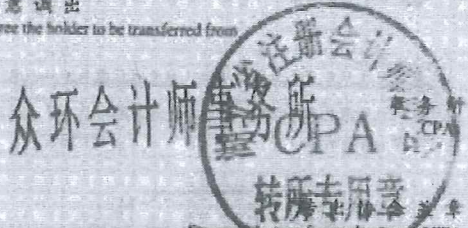 意调出
ree the holder to be transferred from
众环会计师事务所
注册会计师
事务所
CPA
CPA
转所专用章